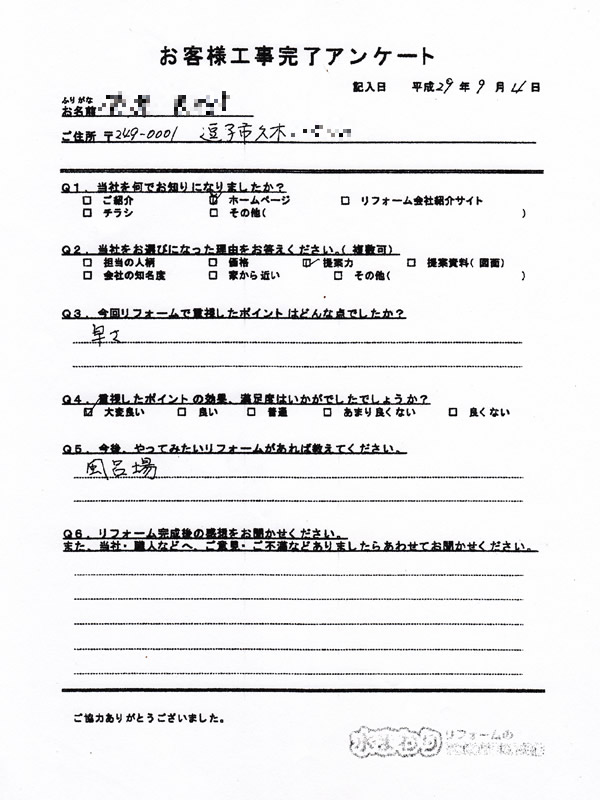 お客様工事完了アンケート
記入日 平成29年9月4日
ふりがな
お名前
ご住所 〒249-0001 逗子市久木
Q1．当社を何でお知りになりましたか？
□ ご紹介 ☑ ホームページ □ リフォーム会社紹介サイト
□ チラシ □ その他( )
Q2．当社をお選びになった理由をお答えください。(複数可)
□ 担当の人柄 □ 価格 ☑ 提案力 □ 提案資料(図面)
□ 会社の知名度 □ 家から近い □ その他( )
Q3．今回リフォームで重視したポイントはどんな点でしたか？
早さ
Q4．重視したポイントの効果、満足度はいかがでしたでしょうか？
☑ 大変良い □ 良い □ 普通 □ あまり良くない □ 良くない
Q5．今後、やってみたいリフォームがあれば教えてください。
風呂場
Q6．リフォーム完成後の感想をお聞かせください。
また、当社・職人などへ、ご意見・ご不満などありましたらあわせてお聞かせください。
ご協力ありがとうございました。
水まわり リフォームの